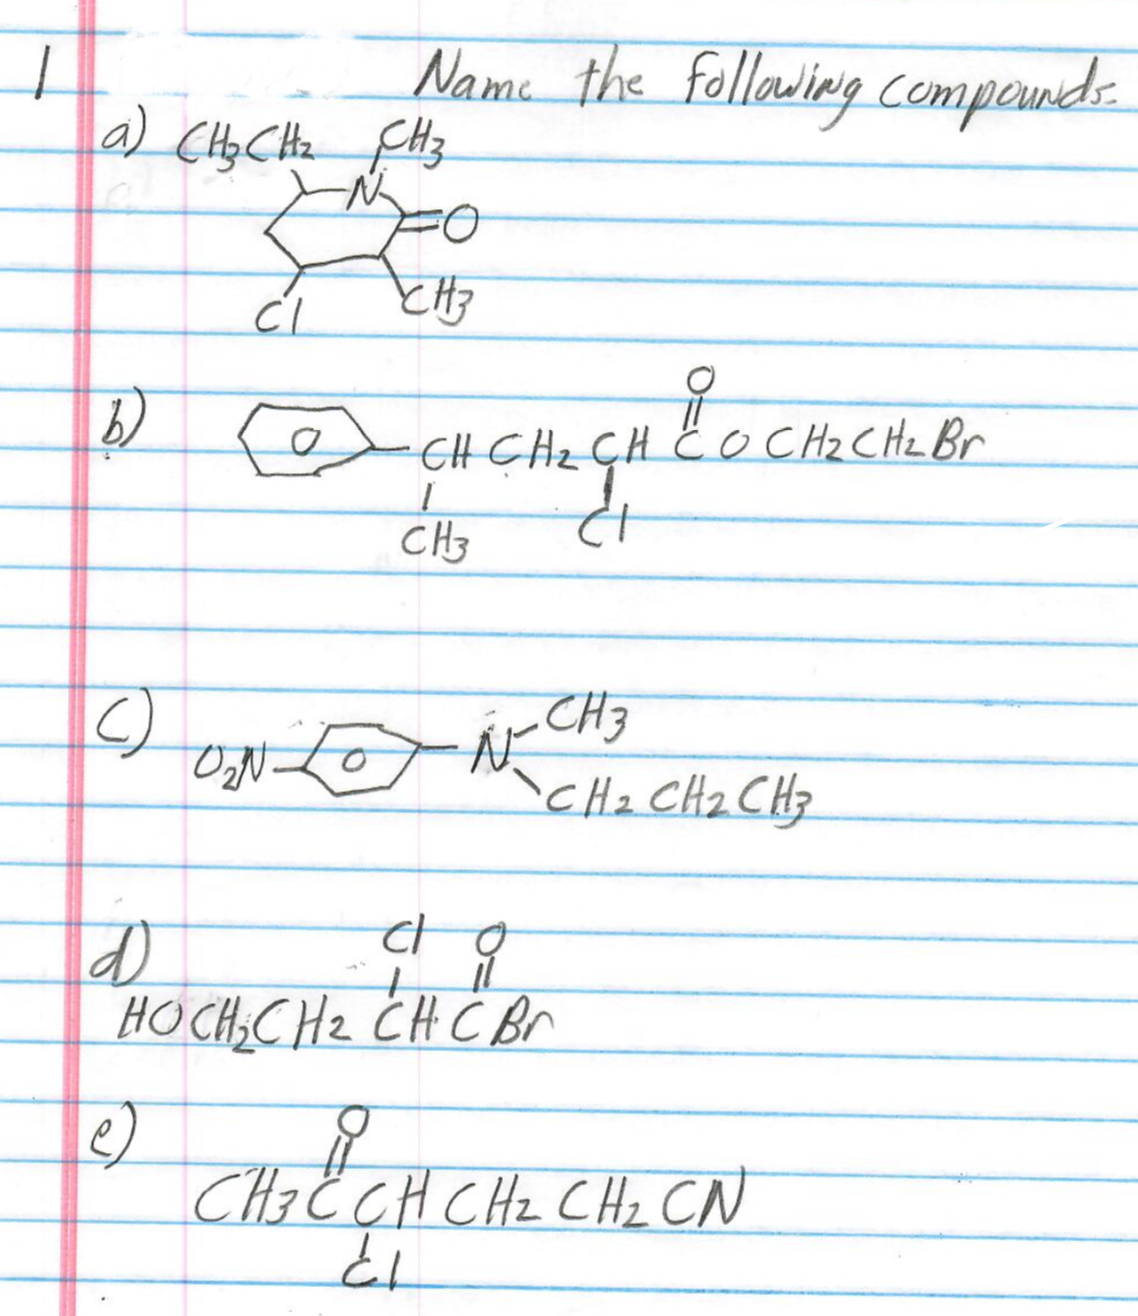 1 Name the following compounds.
a) CH3CH2 CH3
N
=O
Cl CH3
O
b) CH CH2 CH C O CH2 CH2 Br
CH3 Cl
c) O2N N CH3
CH2 CH2 CH3
Cl O
d)
HOCH2CH2 CH C Br
e) O
CH3 C CH CH2 CH2 CN
Cl